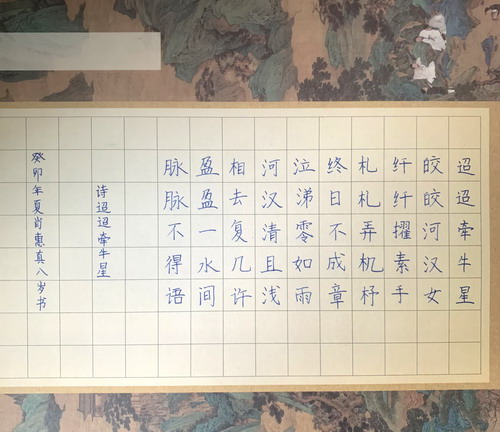 迢迢牵牛星
皎皎河汉女
纤纤擢素手
札札弄机杼
终日不成章
泣涕零如雨
河汉清且浅
相去复几许
盈盈一水间
脉脉不得语
诗迢迢牵牛星
癸卯年夏肖惠真八岁书